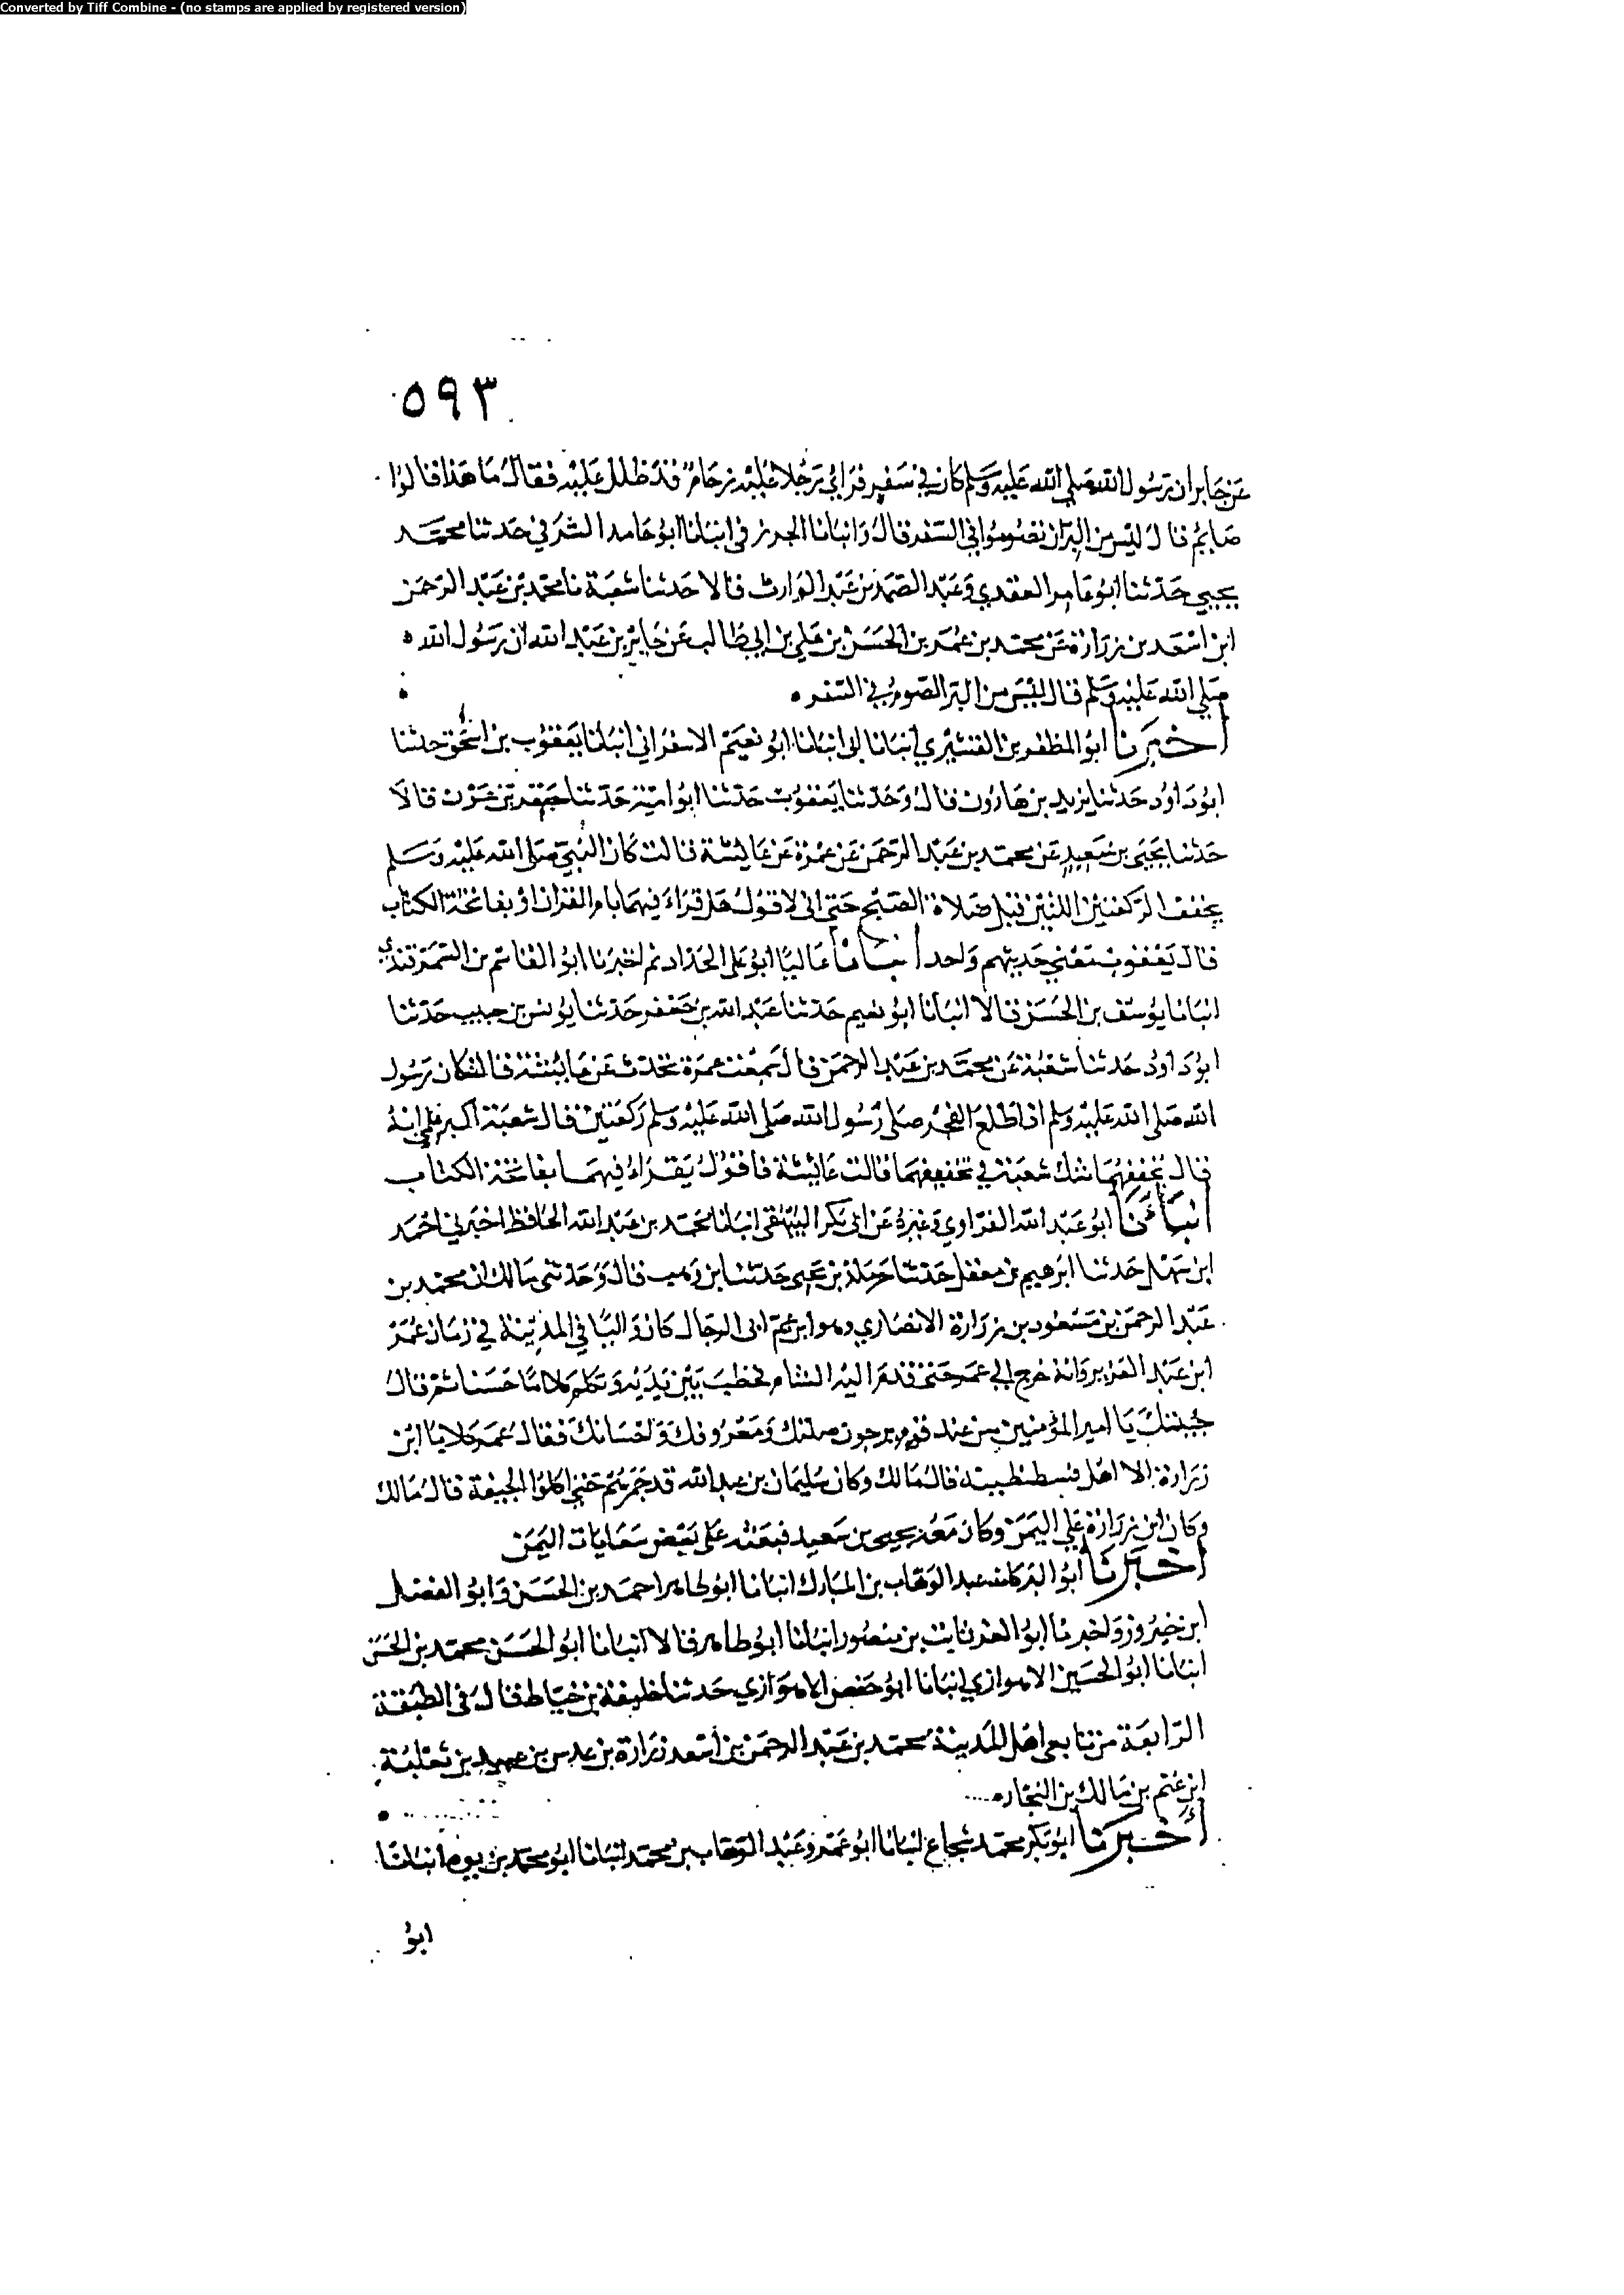 Converted by Tiff Combine - (no stamps are applied by registered version)
٥٩٣
عن جابر ان رسول الله صلى الله عليه وسلم كان في سفر فراى رجلا عليه زحام قد ظلل عليه فقال ما هذا قالوا
صايم قال ليس من البر ان تصوموا في السفر قال وانبانا الجوزقي انبانا ابو حامد الشرقي حدثنا محمد
يحيى حدثنا ابو عامر العقدي وعبد الصمد بن عبد الوارث قالا حدثنا شعبة نا محمد بن عبد الرحمن
ابن اسعد بن زرارة عن محمد بن عمر بن الحسن بن علي بن ابي طالب عن جابر بن عبد الله ان رسول الله
صلى الله عليه وسلم قال ليس من البر الصوم في السفر
اخبرنا ابو المظفر بن القشيري انبانا ابى انبانا ابو نعيم الاسفراني انبانا يعقوب بن اسحق حدثنا
ابو داود حدثنا يزيد بن هارون قال وحدثنا يعقوب حدثنا ابو امية حدثنا جعفر بن عون قالا
حدثنا يحيى بن سعيد عن محمد بن عبد الرحمن عن عمرة عن عايشة قالت كان النبي صلى الله عليه وسلم
يخفف الركعتين اللتين قبل صلاة الصبح حتى اني لاقول هل قراء فيهما بام القران او بفاتحة الكتاب
قال يعقوب معنى حديثهم واحد انبانا عاليا ابو على الحداد ثم اخبرنا ابو القاسم بن السمرقندي
انبانا يوسف بن الحسن قالا انبانا ابو نعيم حدثنا عبد الله بن جعفر حدثنا يونس بن حبيب حدثنا
ابو داود حدثنا شعبة عن محمد بن عبد الرحمن قال سمعت عمرة تحدث عن عايشة قالت كان رسول
الله صلى الله عليه وسلم اذا طلع الفجر صلى رسول الله صلى الله عليه وسلم ركعتين قال شعبة اكبر علمي انه
قال يخففهما شك شعبة في تخفيفهما قالت عايشة فاقول يقراء فيهما بفاتحة الكتاب
انبانا ابو عبد الله الفراوي وغيره عن ابي بكر البيهقي انبانا محمد بن عبد الله الحافظ اخبرني احمد
ابن سهل حدثنا ابرهيم بن معقل حدثنا حرملة بن يحيى حدثنا ابن وهب قال وحدثني مالك ان محمد بن
عبد الرحمن بن مسعود بن زرارة الانصاري وهو ابن عم ابى الرجال كان واليا في المدينة في زمان عمر
ابن عبد العزيز وانه خرج الى عمر حتى قدم اليه الشام فخطب بين يديه وتكلم كلاما حسنا ثم قال
جيتك يا امير المؤمنين من عند قوم يرجون صلتك ومعروفك واحسانك فقال عمر كلا يا ابن
زرارة الا اهل قسطنطينة قال مالك وكان سليمان بن عبد الله قد جمرتم حتى اكلوا الجيفة قال مالك
وكان ابن زرارة على اليمن وكان معه يحيى بن سعيد فبعثه على بعض سعايات اليمن
اخبرنا ابو البركات عبد الوهاب بن المبارك انبانا ابو طاهر احمد بن الحسن وابو الفضل
ابن خيرون واخبرنا ابو العز ثابت بن منصور انبانا ابو طاهر قالا انبانا ابو الحسن محمد بن الحسن
انبانا ابو الحسين الاهوازي انبانا ابو حفص الاهوازي حدثنا خليفة بن خياط قال في الطبقة
الرابعة من تابعى اهل المدينة محمد بن عبد الرحمن بن اسعد زرارة بن عدس بن عبيد بن ثعلبة
ابن غنم بن مالك بن النجار
اخبرنا ابو بكر محمد شجاع انبانا ابو عمرو عبد الوهاب بن محمد انبانا ابو محمد بن يوه انبانا
ابو